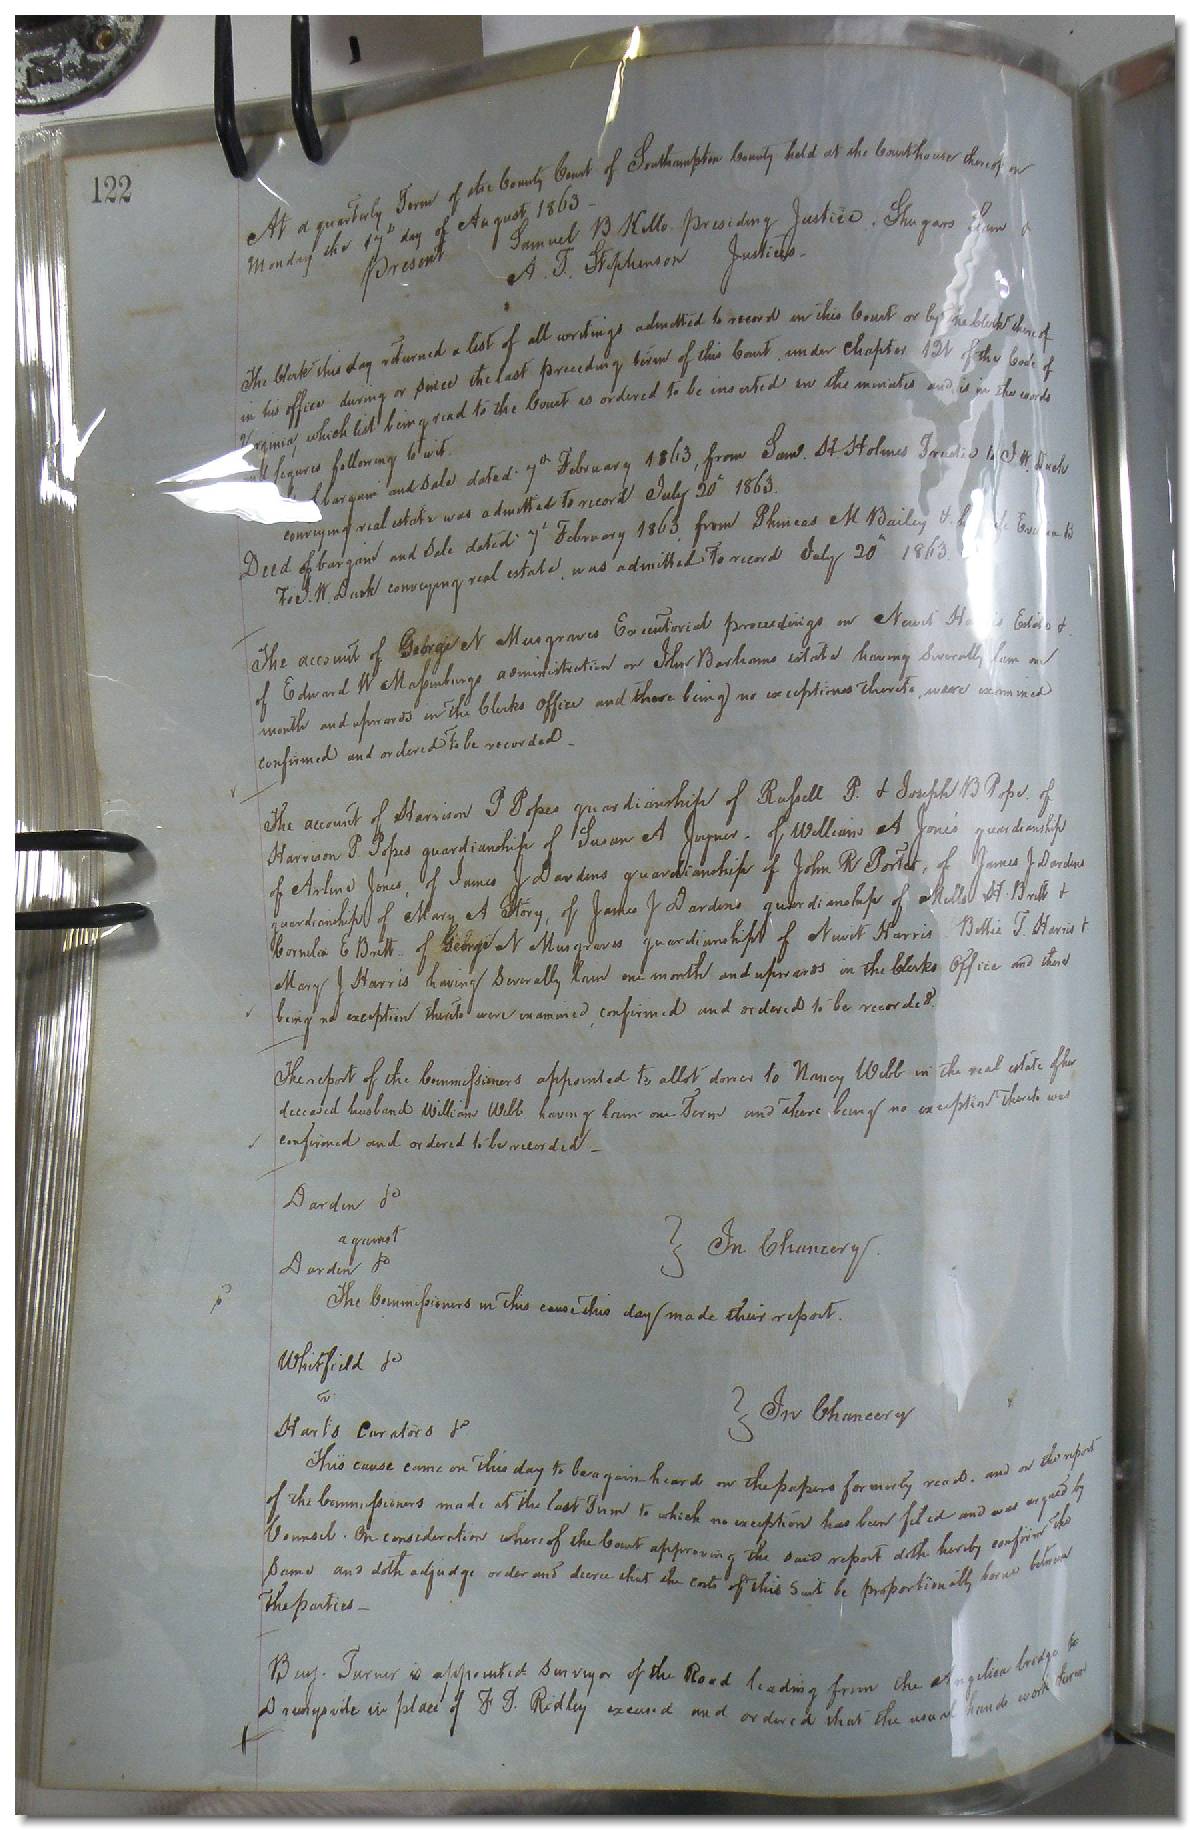 122
At a quarterly Term of the County Court of Southampton County held at the Courthouse thereof on
Monday the 17th day of August 1863 -
Present Samuel B Kello. Presiding Justice. Shugars &
A. T. Stephenson Justices-
The Clerk this day returned a list of all writings admitted to record in this Court or by the Clerk thereof
in his office during or since the last preceding term of this Court, under Chapter 121 of the Code of
Virginia, which list being read to the Court is ordered to be inserted in the minutes and is in the words
figures following to wit.
bargain and Sale dated 7th February 1863, from Saml. H Holmes to J W
conveying real estate was admitted to record July 20th 1863.
Deed of bargain and Sale dated 7th February 1863 from Phineas M Bailey &
To J. W. conveying real estate, was admitted to record July 20th 1863.
The account of George N Musgraves Executorial proceedings on Newit Harris Estate &
of Edward W Massenburgs administration on John Barhams estate having Severally lain one
month and upwards in the Clerks Office and there being no exceptions thereto, were examined
confirmed and ordered to be recorded -
The account of Harrison P Popes guardianship of Russell P. & Joseph B Pope. of
Harrison P. Popes guardianship of Susan A Joyner - of William A Jones guardianship
of Arline Jones, of James J Dardens guardianship of John R Porter, of James J Dardens
guardianship of Mary A Story, of James J Dardens guardianship of Mills H. Britt &
Cornelia E Britt - of George N Musgraves guardianship of Newit Harris Bettie T. Harris &
Mary J Harris having Severally lain one month and upwards in the Clerks Office and there
being no exception thereto were examined, confirmed and ordered to be recorded.
The report of the Commissioners appointed to allot dower to Nancy Webb in the real estate of her
deceased husband William Webb having lain one Term and there being no exception thereto was
confirmed and ordered to be recorded -
Darden &c
against } In Chancery.
Darden &c
The Commissioners in this cause this day made their report.
Whitfield &c
vs } In Chancery
Harts Curators &c
This cause came on this day to be again heard on the papers formerly read. and on the report
of the Commissioners made at the last Term to which no exception has been filed and was argued by
Counsel. On consideration whereof the Court approving the said report doth hereby confirm the
Same and doth adjudge order and decree that the costs of this Suit be proportionally borne between
the parties -
Benj. Turner is appointed Surveyor of the Road leading from the Angelica bridge to
Drewrysville in place of F D. Ridley excused and ordered that the usual hands work